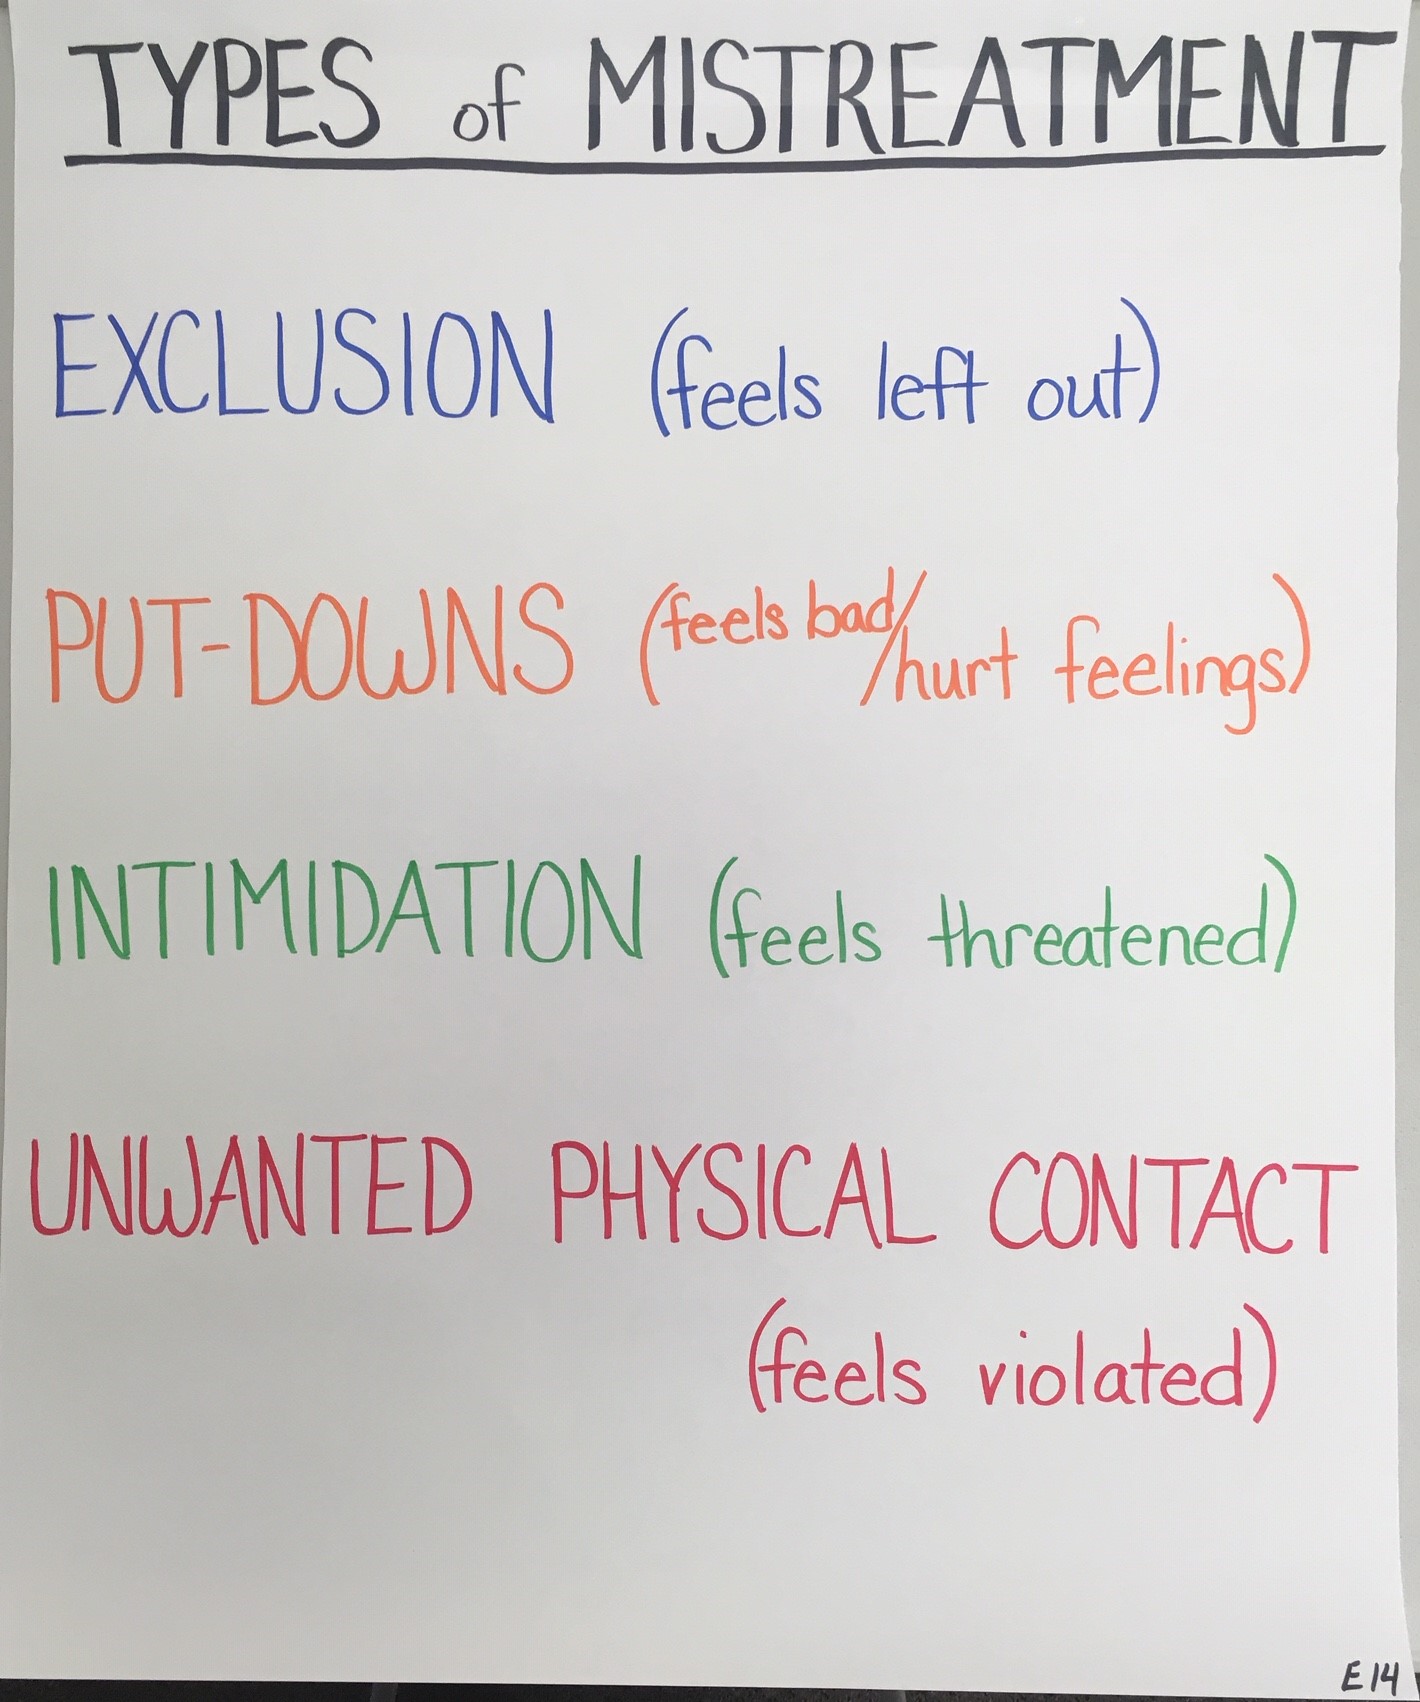 TYPES of MISTREATMENT
EXCLUSION (feels left out)
PUT-DOWNS (feels bad/hurt feelings)
INTIMIDATION (feels threatened)
UNWANTED PHYSICAL CONTACT
(feels violated)
E14